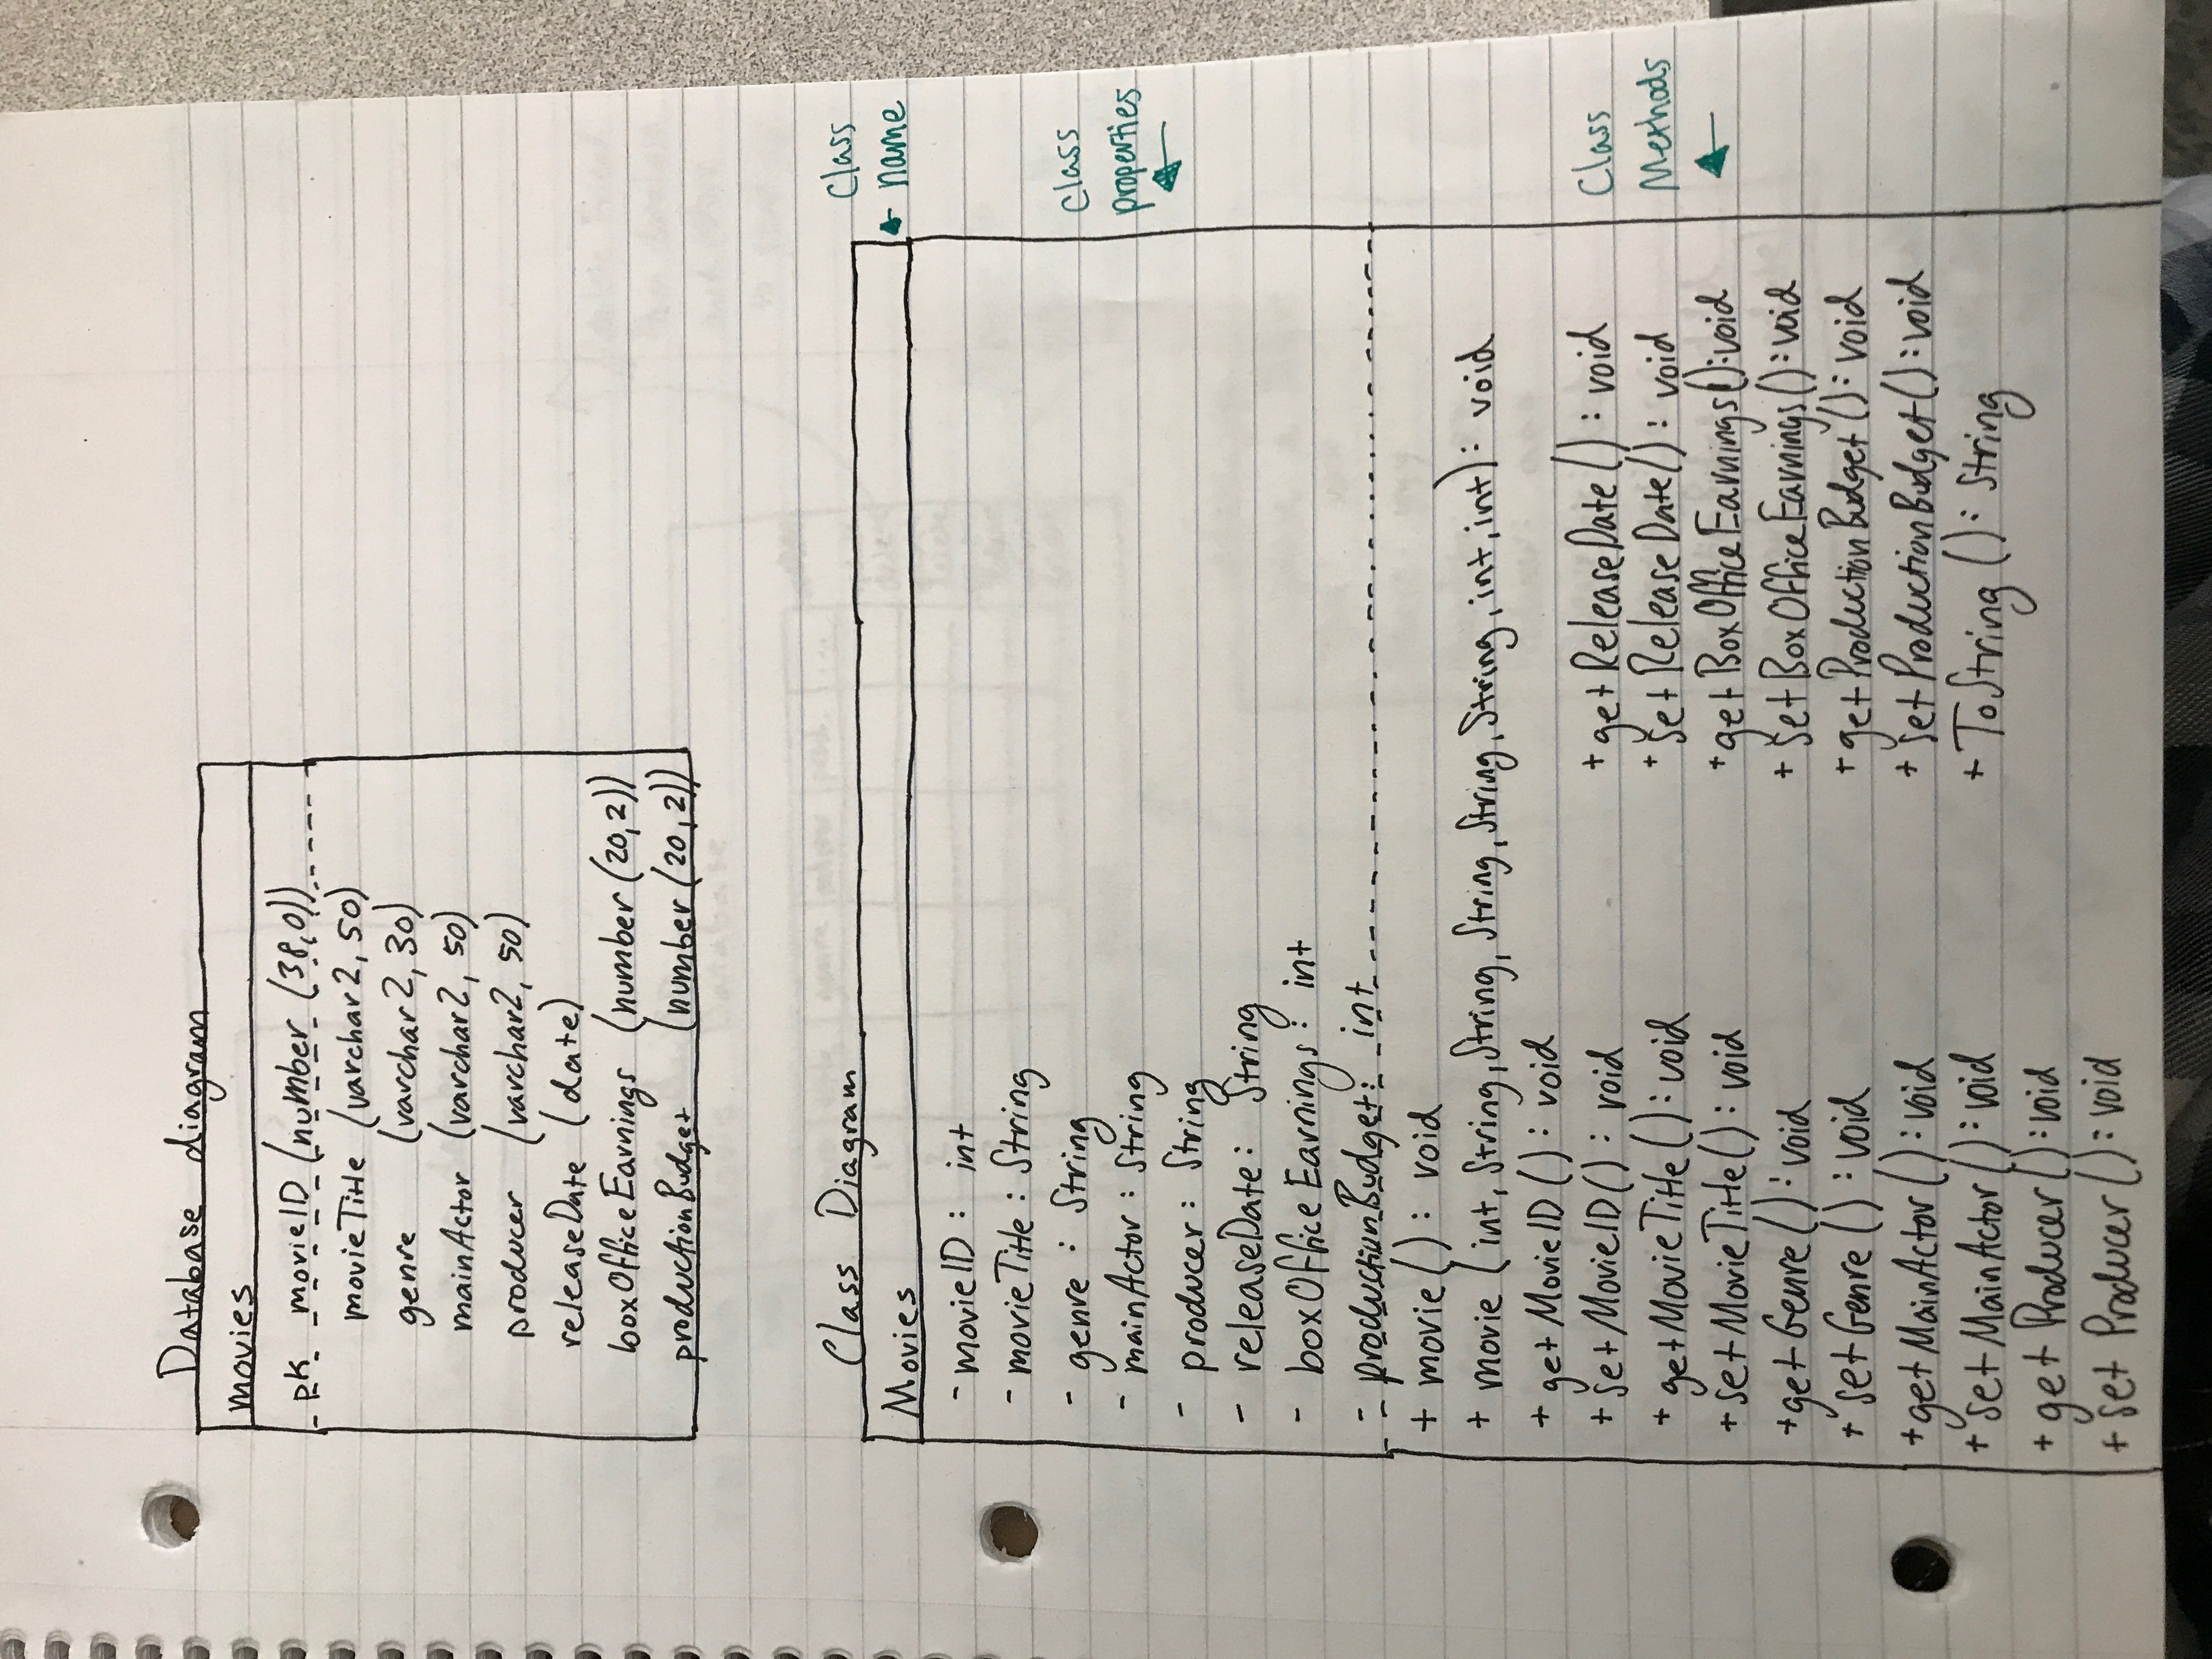 Database diagram
movies
pk movieID (number (38,0))
movieTitle (varchar2, 50)
genre (varchar2, 30)
mainActor (varchar2, 50)
producer (varchar2, 50)
releaseDate (date)
boxOfficeEarnings (number (20,2))
productionBudget (number (20,2))
Class Diagram
Class
name
Movies
- movieID : int
- movieTitle : String
- genre : String
- mainActor : String
- producer : String
- releaseDate : String
- boxOfficeEarnings : int
- productionBudget : int
Class
properties
+ movie () : void
+ movie (int, String, String, String, String, String, int, int) : void
+ getMovieID () : void
+ setMovieID () : void
+ getMovieTitle () : void
+ setMovieTitle () : void
+ getGenre () : void
+ setGenre () : void
+ getMainActor () : void
+ setMainActor () : void
+ getProducer () : void
+ setProducer () : void
+ getReleaseDate () : void
+ setReleaseDate () : void
+ getBoxOfficeEarnings () : void
+ setBoxOfficeEarnings () : void
+ getProductionBudget () : void
+ setProductionBudget () : void
+ ToString () : String
Class
Methods